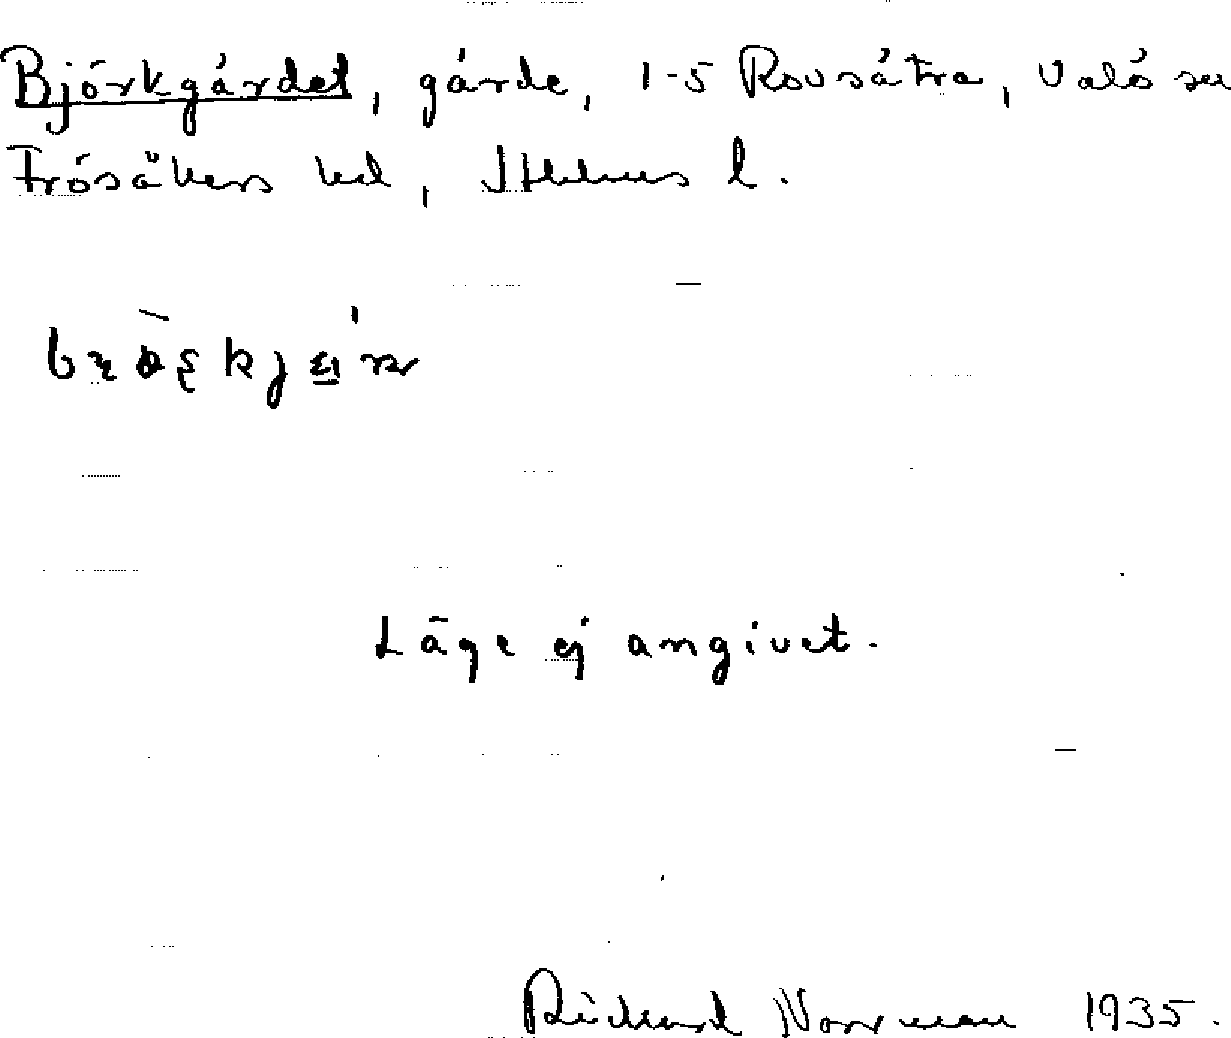 Björkgärdet, gärde, 1-5 Rovsättra, Valö sn
Frösåkers hd, Sthlms l.
Läge ej angivet.
Rickard Norrman 1935.